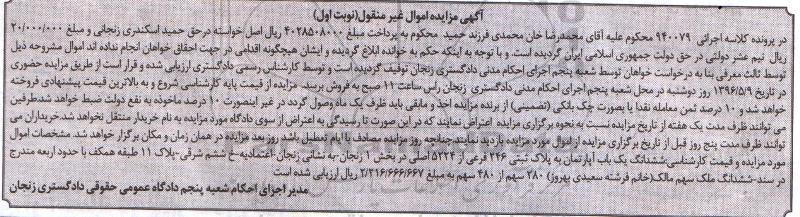 آگهی مزایده اموال غیر منقول(نوبت اول)
در پرونده کلاسه اجرائی ۹۴۰۰۷۹ محکوم علیه آقای محمدرضا خان محمدی فرزند حمید محکوم به پرداخت مبلغ ۴۰۲۸۵۰۸۰۰۰ ریال اصل خواسته درحق حمید اسکندری زنجانی و مبلغ ۲۰/۰۰۰/۰۰۰
ریال نیم عشر دولتی در حق دولت جمهوری اسلامی ایران گردیده است. و با توجه به اینکه حکم به خوانده ابلاغ گردیده و ایشان هیچگونه اقدامی در جهت احقاق خواهان انجام نداده اند اموال مشروحه ذیل
توسط ثالث معرفی بنا به درخواست خواهان توسط شعبه پنجم اجرای احکام مدنی دادگستری زنجان توقیف گردیده است و توسط کارشناس رسمی دادگستری ارزیابی شده و قرار است از طریق مزایده حضوری
در تاریخ ۱۳۹۶/۵/۹ روز دوشنبه در محل شعبه پنجم اجرای احکام مدنی دادگستری زنجان راس ساعت ۱۱ صبح به فروش برسد. مزایده از قیمت پایه کارشناسی شروع و به بالاترین قیمت پیشنهادی فروخته
خواهد شد و ۱۰ درصد ثمن معامله نقدا یا بصورت چک بانکی (تضمینی) از برنده مزایده اخذ و مابقی باید ظرف یک ماه وصول گردد در غیر اینصورت ۱۰ درصد ماخوذه به نفع دولت ضبط خواهد شد.طرفین
می توانند ظرف مدت یک هفته از تاریخ مزایده نسبت به نحوه برگزاری مزایده اعتراض نمایند که در این صورت تا رسیدگی به اعتراض از سوی دادگاه مورد مزایده به نام خریدار منتقل نخواهد شد.خریداران می
توانند ظرف مدت پنج روز قبل از تاریخ برگزاری مزایده از اموال مورد مزایده بازدید نمایند.چنانچه روز مزایده مصادف با ایام تعطیل باشد روز بعد مزایده در همان زمان و مکان برگزار خواهد شد. مشخصات اموال
مورد مزایده و قیمت کارشناسی:ششدانگ یک باب آپارتمان به پلاک ثبتی ۲۴۶ فرعی از ۵۲۲۴ اصلی در بخش ۱ زنجان -به نشانی زنجان-اعتمادیه-خ ششم شرقی-پلاک ۱۱ طبقه همکف با حدود اربعه مندرج
در سند-ششدانگ ملک سهم مالک(خانم فرشته سعیدی بهروز) ۲۸۰ سهم از ۴۸۰ سهم به مبلغ ۲/۲۱۶/۶۶۶/۶۶۷ ریال ارزیابی شده است
مدیر اجرای احکام شعبه پنجم دادگاه عمومی حقوقی دادگستری زنجان